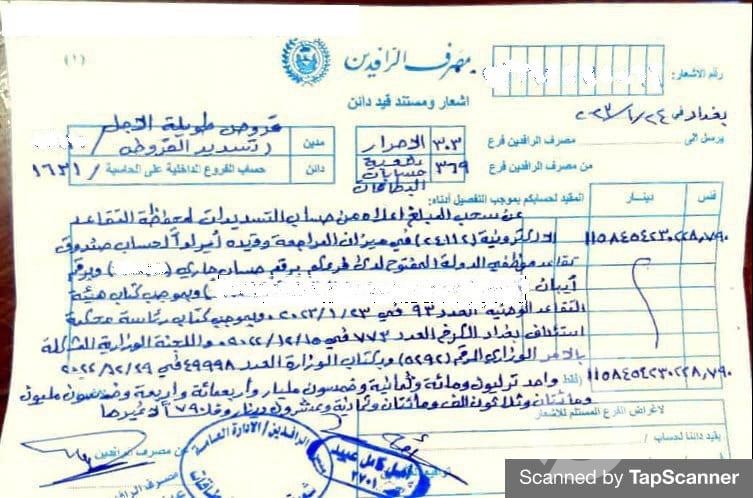 (١)
مصرف الرافدين
رقم الاشعار:
اشعار ومستند قيد دائن
بغداد في ٢٠٢٣/١/٢٤
يرسل الى
مصرف الرافدين فرع
٣٠٣
الاحرار
مدين
قروض طويلة الاجل
/ تسديد القروض
من مصرف الرافدين فرع
٣٦٩
بطاقات
دائن
حساب الفروع الداخلية على الحاسبة / ١٦٣١
فلس
دينار
المقيد لحسابكم بموجب التفصيل أدناه:
عن سحب المبلغ اعلاه من حساب التسديدات لمحفظة التقاعد
الالكترونية (٢٤١١٢) في ميزان المراجعة وقيده أمراً لحساب صندوق
تقاعد موظفي الدولة المفتوح لدى فرعكم برقم حساب جاري ( ) وبرقم
آيبان ( ) وبموجب كتاب هيئة
التقاعد الوطنية العدد ٩٣ في ٢٠٢٣/١/٢٣ وبموجب كتاب رئاسة محكمة
استئناف بغداد الكرخ العدد ٧٧٣ في ٢٠٢٢/١٢/١٥ واللجنة الوزارية المشكلة
بالامر الوزاري المرقم (٥٢٩٢) وبكتاب الوزارة العدد ٤٩٩٩٨ في ٢٠٢٢/١٢/٢٩
١١٥٨٤٥٤٢٣٠٢٢٨,٧٩٠
فقط واحد ترليون ومائة وثمانية وخمسون مليار وأربعمائة وأربعة وخمسون مليون
ومائتان وثلاثون الف ومائتان وثمانية وعشرون دينار و٧٩٠ فلس لا غيرها
لاغراض الفرع المستلم للاشعار
يقيد دائنا لحساب /
عن مصرف الرافدين
مصرف الرافدين
الرافدين / الادارة العامة
امل كامل عبيد
٢٧٠١
Scanned by TapScanner